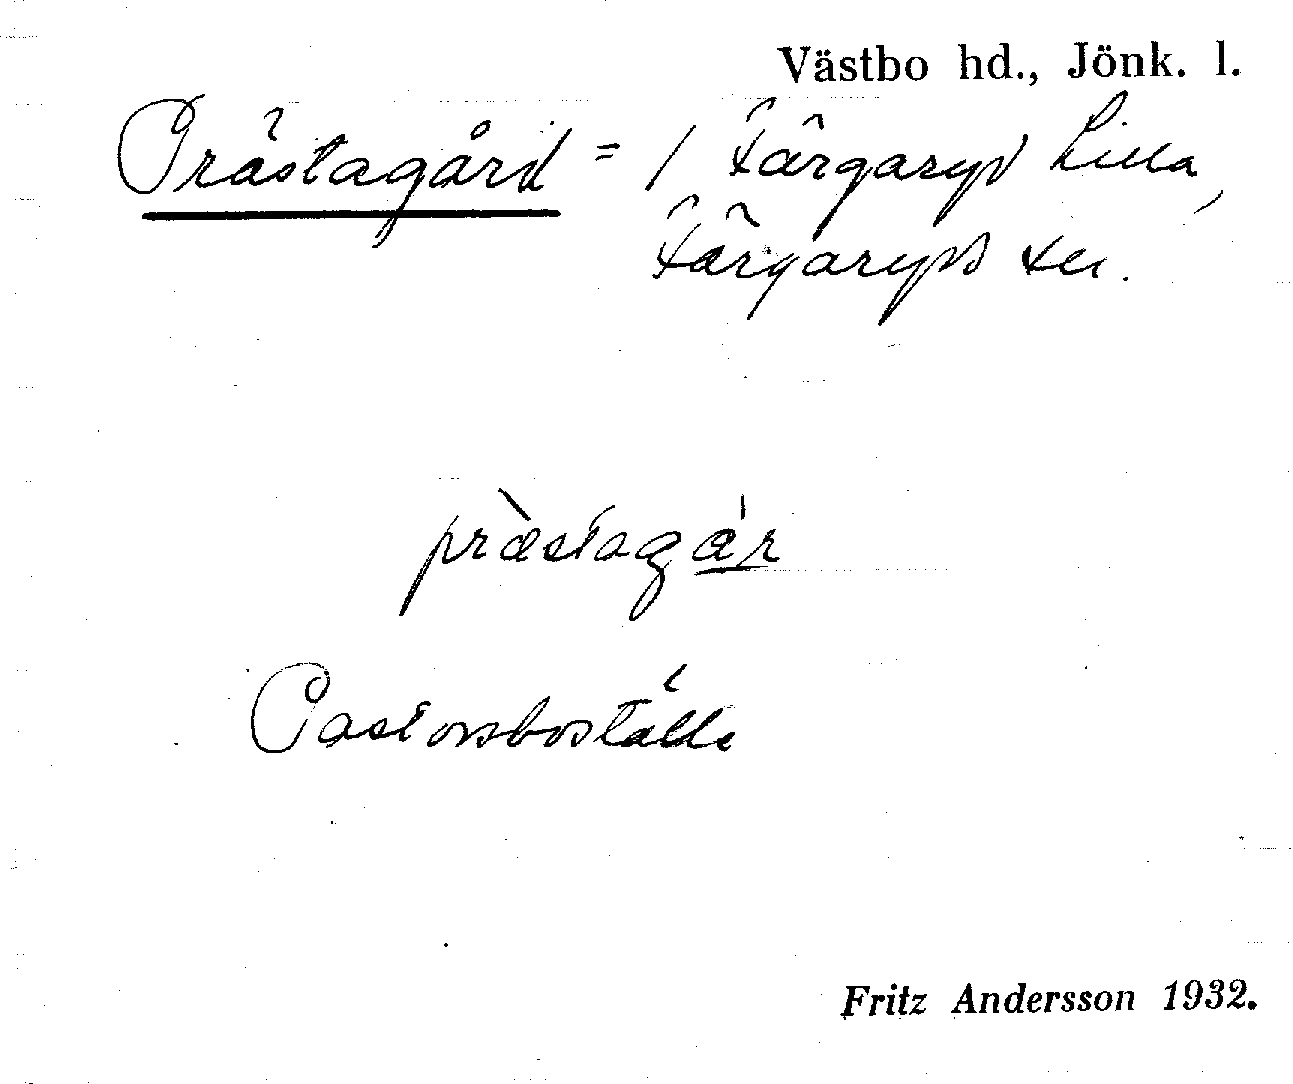 Västbo hd., Jönk. l.
Prästagård = 1 Färgaryd Lilla,
Färgaryds sn.
prὰstagár
Pastorsboställe
Fritz Andersson 1932.